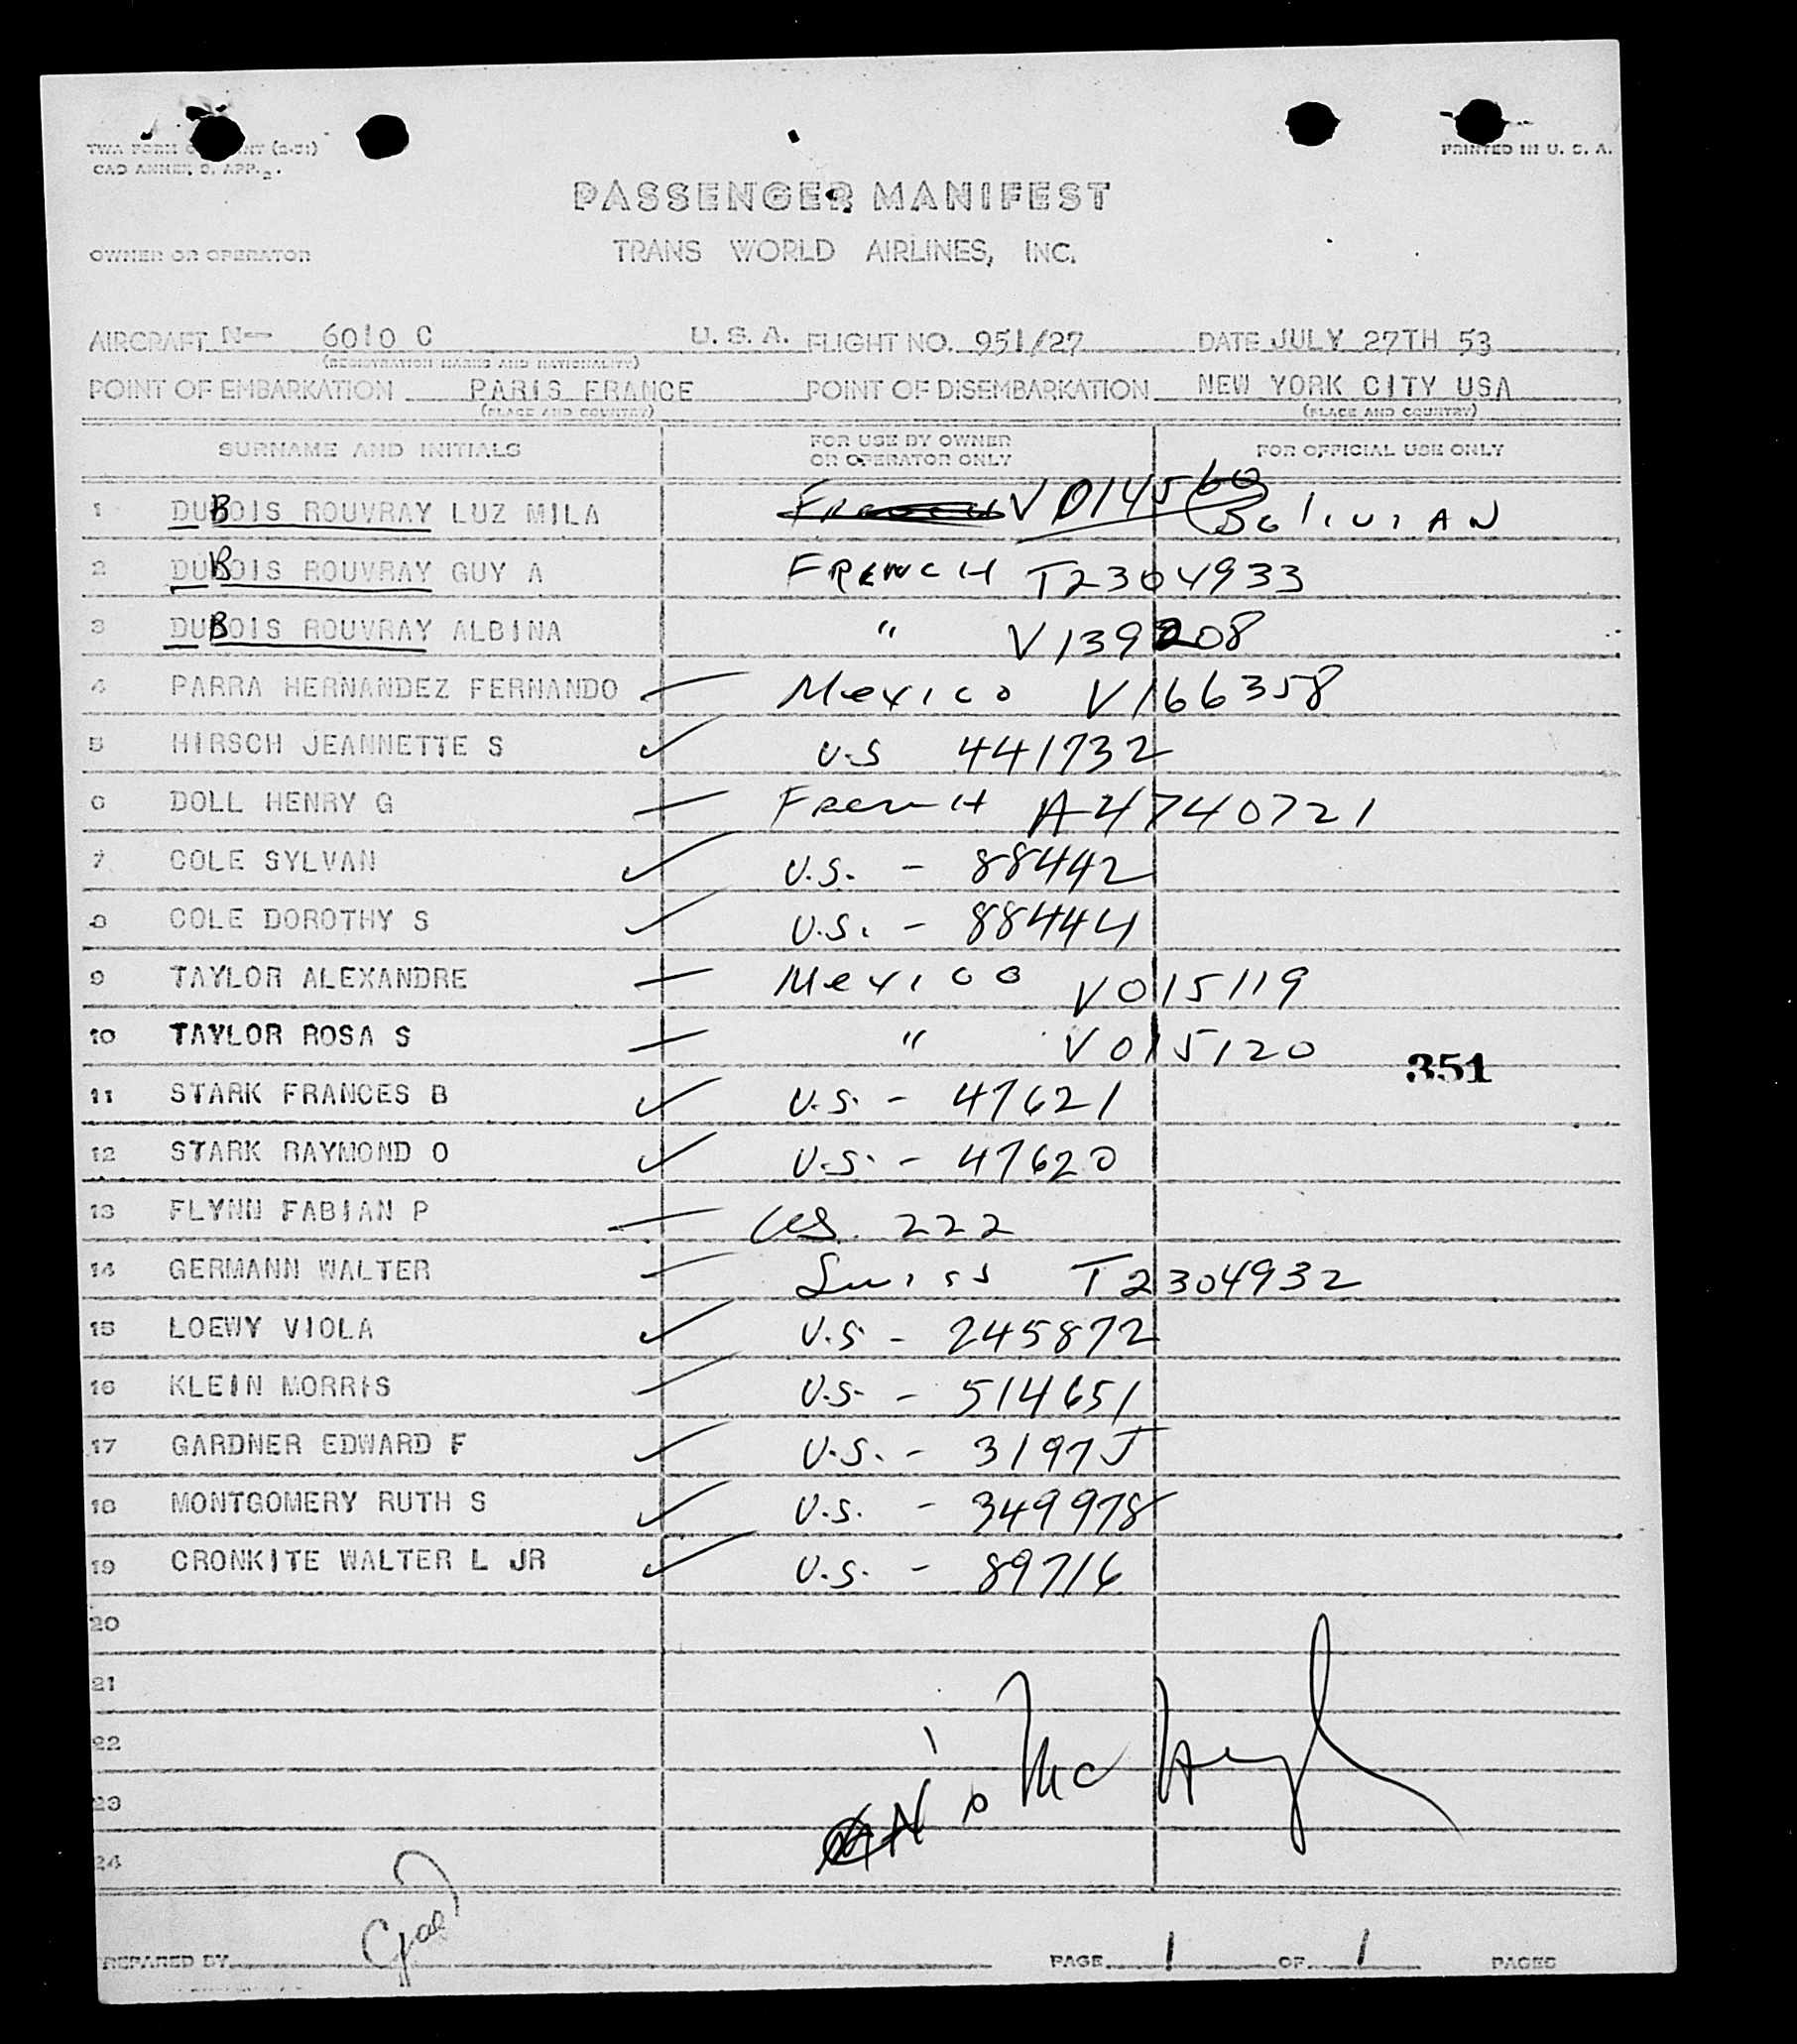 PRINTED IN U. S. A.
PASSENGER MANIFEST
OWNER OR OPERATOR TRANS WORLD AIRLINES, INC.
AIRCRAFT N— 6010 C U. S. A. FLIGHT NO. 951/27 DATE JULY 27TH 53
(REGISTRATION MARKS AND NATIONALITY)
POINT OF EMBARKATION PARIS FRANCE POINT OF DISEMBARKATION NEW YORK CITY USA
(PLACE AND COUNTRY) (PLACE AND COUNTRY)
SURNAME AND INITIALS FOR USE BY OWNER OR OPERATOR ONLY FOR OFFICIAL USE ONLY
1 DUBOIS ROUVRAY LUZ MILA French V014560 Bolivian
2 DUBOIS ROUVRAY GUY A FRENCH T2304933
3 DUBOIS ROUVRAY ALBINA " V139208
4 PARRA HERNANDEZ FERNANDO — Mexico V166358
5 HIRSCH JEANNETTE S ✓ U.S 441732
6 DOLL HENRY G — French A4740721
7 COLE SYLVAN ✓ U.S. - 88442
8 COLE DOROTHY S ✓ U.S. - 88444
9 TAYLOR ALEXANDRE — Mexico V015119
10 TAYLOR ROSA S — " V015120
351
11 STARK FRANCES B ✓ U.S. - 47621
12 STARK RAYMOND O ✓ U.S. - 47620
13 FLYNN FABIAN P — US. 222
14 GERMANN WALTER — Swiss T2304932
15 LOEWY VIOLA ✓ U.S - 245872
16 KLEIN MORRIS ✓ U.S. - 514651
17 GARDNER EDWARD F ✓ U.S. - 31975
18 MONTGOMERY RUTH S ✓ U.S. - 349978
19 CRONKITE WALTER L JR ✓ U.S. - 89716
20
21
22
23
24
PREPARED BY PAGE 1 OF 1 PAGES